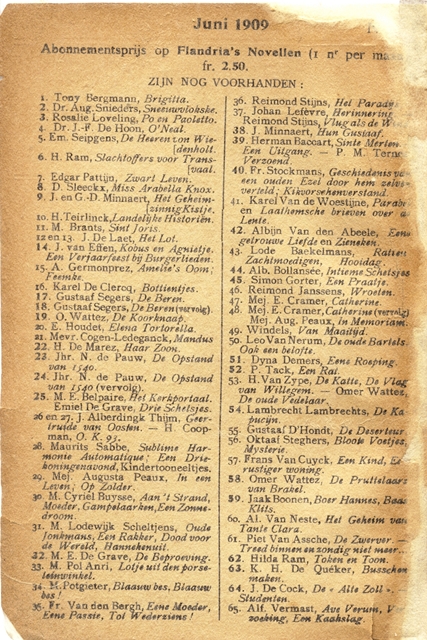 Juni 1909
Abonnementsprijs op Flandria's Novellen (1 nr per
fr. 2.50.
ZIJN NOG VOORHANDEN :
1. Tony Bergmann, Brigitta.
2. Dr. Aug. Snieders, Sneeuwvlokske.
3. Rosalie Loveling, Po en Paoletto.
4. Dr. J.-F. De Hoon, O'Neal.
5. Em. Seipgens, De Heeren zon Wie-
[denholt.
6. H. Ram, Slachtoffers voor Trans-
[vaal.
7. Edgar Pattijn, Zwart Leven.
8. D. Sleeckx, Miss Arabella Knox.
9. J. en G.-D. Minnaert, Het Geheim-
zinnig Kistje.
10. H. Teirlinck, Landelijke Historiën.
11. M. Brants, Sint Joris.
12 en 13. J. De Laet, Het Lot.
14. J. van Effen, Kobus en Agnietje.
Een Verjaarfeest bij Burgerlieden.
15. A. Germonprez, Amelie's Oom;
Feemke.
16. Karel De Clercq, Bottientjes.
17. Gustaaf Segers, De Beren.
18. Gustaaf Segers, De Beren (vervolg)
19. O. Wattez, De Koorknaap.
20. E. Houdet, Elena Tortorella.
21. Mevr. Cogen-Ledeganck, Mandus
22. H. De Marez, Haar Zoon.
23. Jhr. N. de Pauw, De Opstand
van 1540.
24. Jhr. N. de Pauw, De Opstand
van 1540 (vervolg).
25. M. E. Belpaire, Het Kerkportaal.
Emiel De Grave, Drie Schetsjes.
26 en 27. J. Alberdingk Thijm, Geer-
truide van Oosten. — H. Coop-
man, O. K. 93.
28. Maurits Sabbe, Sublime Har-
monie Automatique; Een Drie-
koningenavond, Kindertooneeltjes.
29. Mej. Augusta Peaux, In een
Leven; Op Zolder.
30. M. Cyriel Buysse, Aan 't Strand,
Moeder, Gampelaarken, Een Zonne-
droom.
31. M. Lodewijk Scheltjens, Oude
Jonkmans, Een Rakker, Dood voor
de Wereld, Hannekenuit.
32. M. E. De Grave, De Beproeving.
33. M. Pol Anri, Lotje uit den porse-
leinwinkel.
34. M. Potgieter, Blaauw bes, Blaauw
bes!
35. Fr. Van den Bergh, Eene Moeder,
Eene Passie, Tot Wederziens!
36. Reimond Stijns, Het
37. Johan Lefèvre, Herinnering
Reimond Stijns, Vlug als de
38. J. Minnaert, Hun Gustaaf.
39. Herman Baccart, Sinte Merten.
Een Uitgang. — P. M.
Verzoend.
40. Fr. Stockmans, Geschiedenis
een ouden Ezel door hem zelve
verteld; Kikvorschenverstand.
41. Karel Van de Woestijne,
en Laathemsche brieven over
Lente.
42. Albijn Van den Abeele,
getrouwe Liefde en Zieneken.
43. Lode Baekelmans,
Zachtmoedigen, Hooidag.
44. Alb. Bollansée, Intieme Schetsjes
45. Simon Gorter, Een Praatje.
46. Reimond Janssens, Wroeten.
47. Mej. E. Cramer, Catherine.
48. Mej. E. Cramer, Catherine (vervolg)
Mej. Aug. Peaux, In Memoriam.
49. Windels, Van Maaitijd.
50. Leo Van Nerum, De oude Bartels.
Ook een belofte.
51. Dyna Demers, Eene Roeping.
52. P. Tack, Een Rat.
53. H. Van Zype, De Katte, De Vlag
van Willegem. — Omer Wattez,
De oude Vedelaar.
54. Lambrecht Lambrechts, De
55. Gustaaf D'Hondt, De Deserteur
56. Oktaaf Steghers, Bloote Voetjes,
Mysterie.
57. Frans Van Cuyck, Een Kind,
rustiger woning.
58. Omer Wattez, De Pruttelaars
van Brakel.
59. Jaak Boonen, Boer Hannes,
Klits.
60. Al. Van Neste, Het Geheim van
Tante Clara.
61. Piet Van Assche, De Zwerver. —
Treed binnen en zondig niet meer..
62. Hilda Ram, Token en Toon.
63. K. H. De Quéker,
maken.
64. J. De Cock, De « Alte Zoll ».
Studenten.
65. Alf. Vermast, Ave Verum,
zoeking, Een Kaakslag.